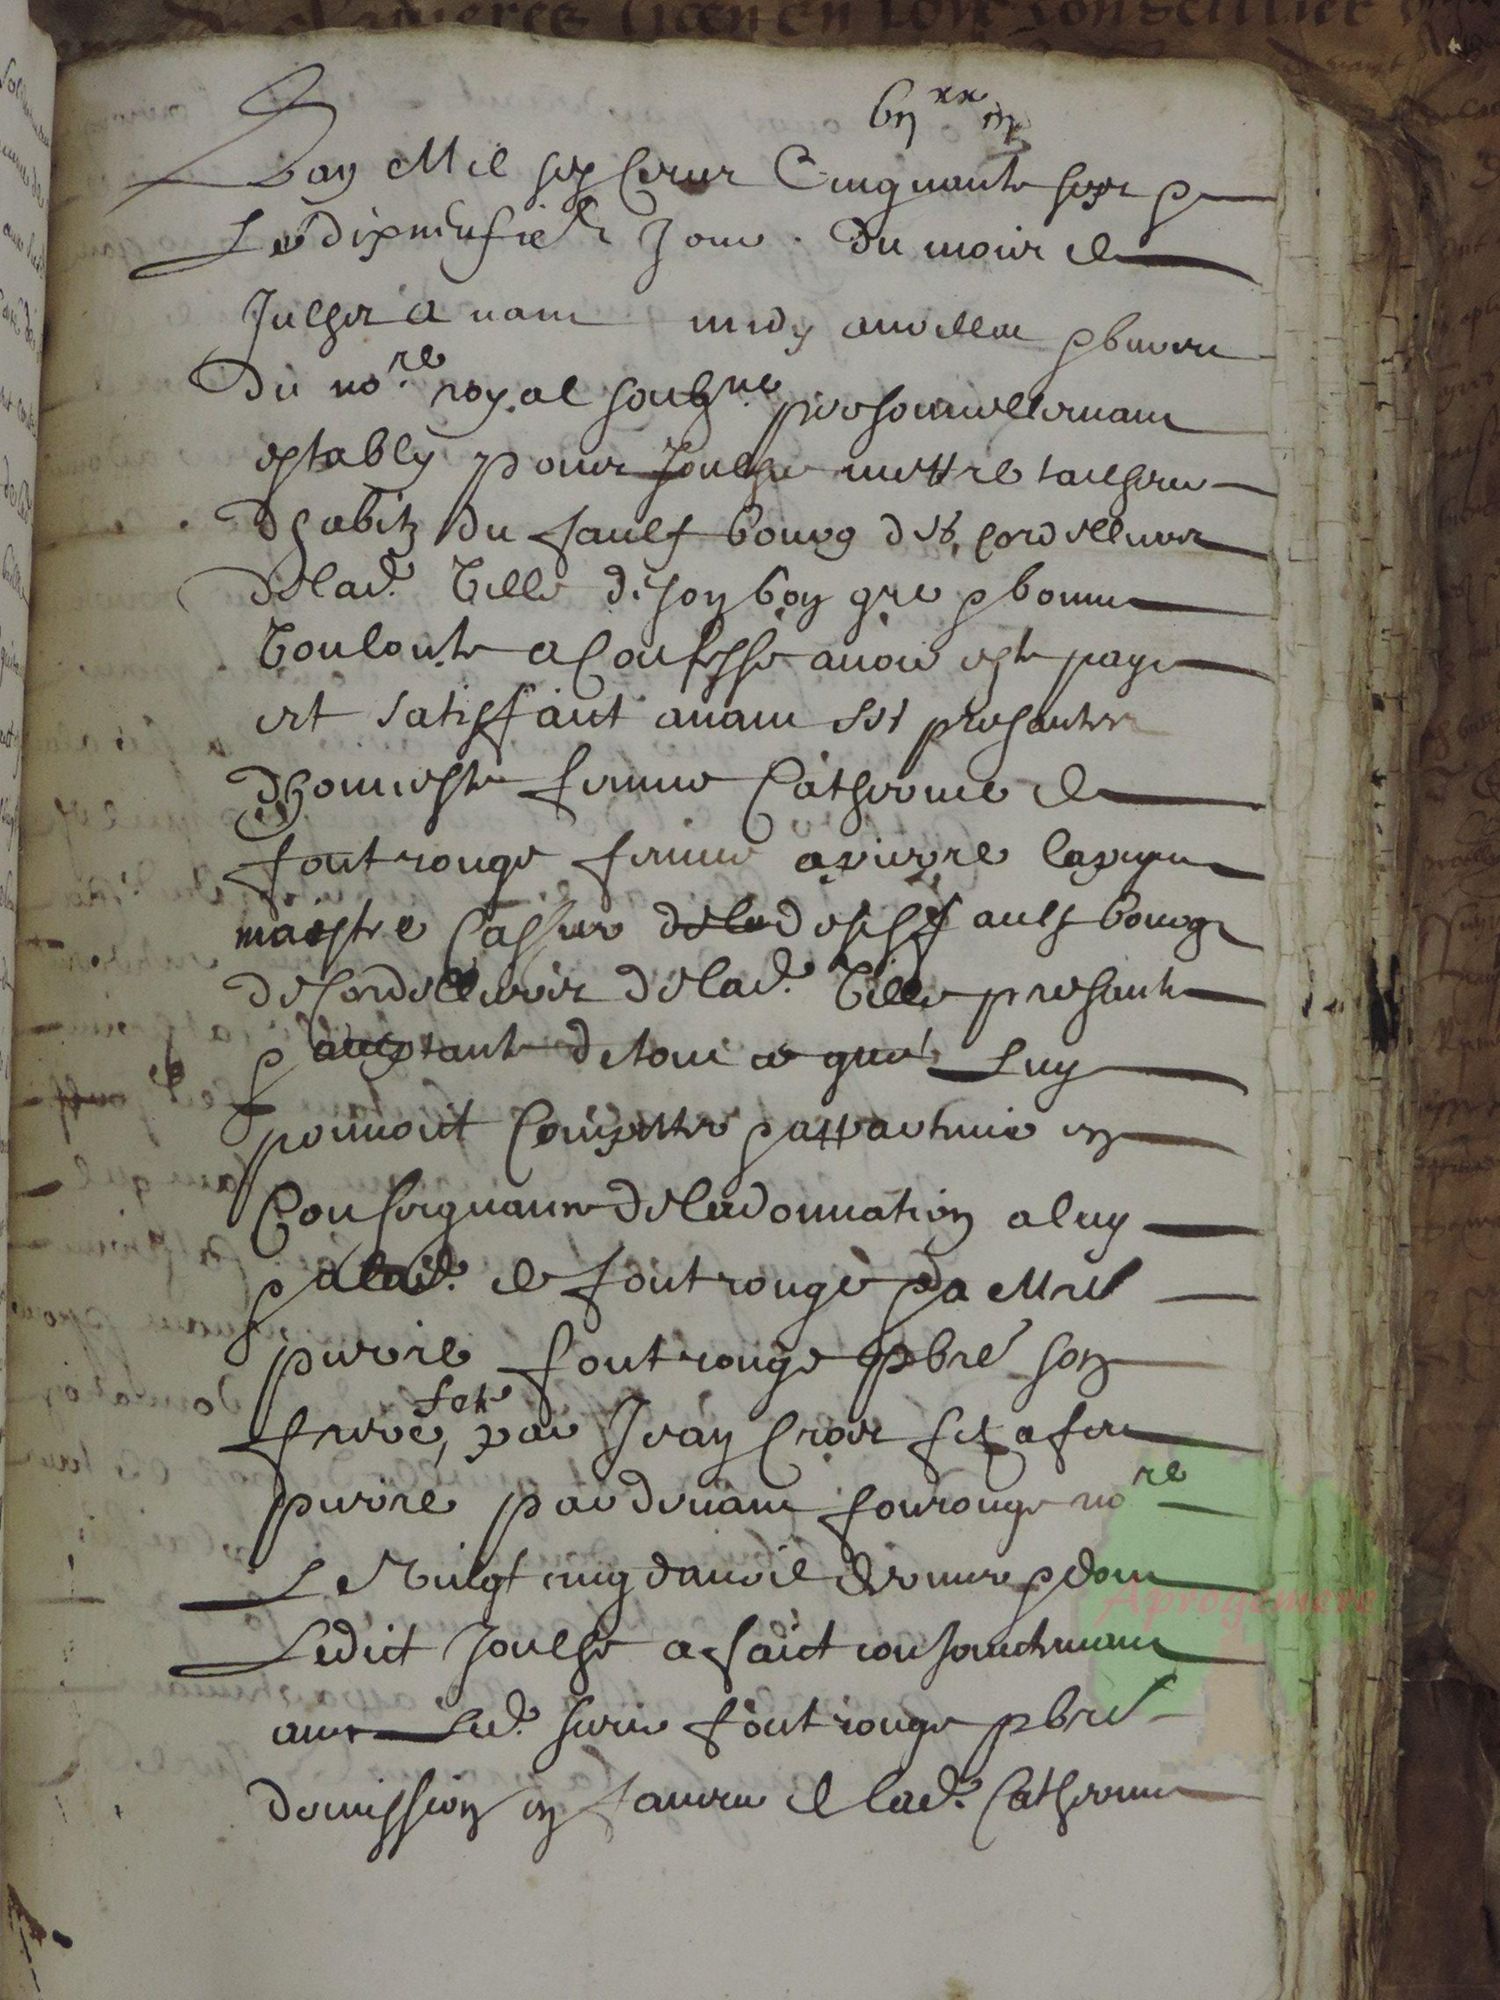 Lan Mil six cens Cinquante sept &
Le dixneufie Jour du mois de
Julhet avant midy
du no.re royal soubz.ne personnellemant
establiy pour Joulhe mettre talheur
dhabitz du faulx bourg des cordelliers
de lad. Ville de son bon gre & bonne
Voulonte a confesse avoir este paye
et satisfaict avant ses presantes
dhonneste femme Catherine de
fontrouge femme a pierre
maistre des faulx bourg
de Cordelliers de lad. Ville presante
tant de tout ce que Luy
pouvoit Competter & appartenir en
Consequance de la donnation a luy
p lad. de fontrouge & a Mre
pierre fontrouge pbre son
frere, par Jean filz a feu
pierre par devant fonrouge no re
Le Vingt cinq d'avril dernier & dont
Ledict Joulhe a faict consantemant
avec Led. sieur fontrouge pbre
demission en faveur de lad. Catherine
Aprogemere